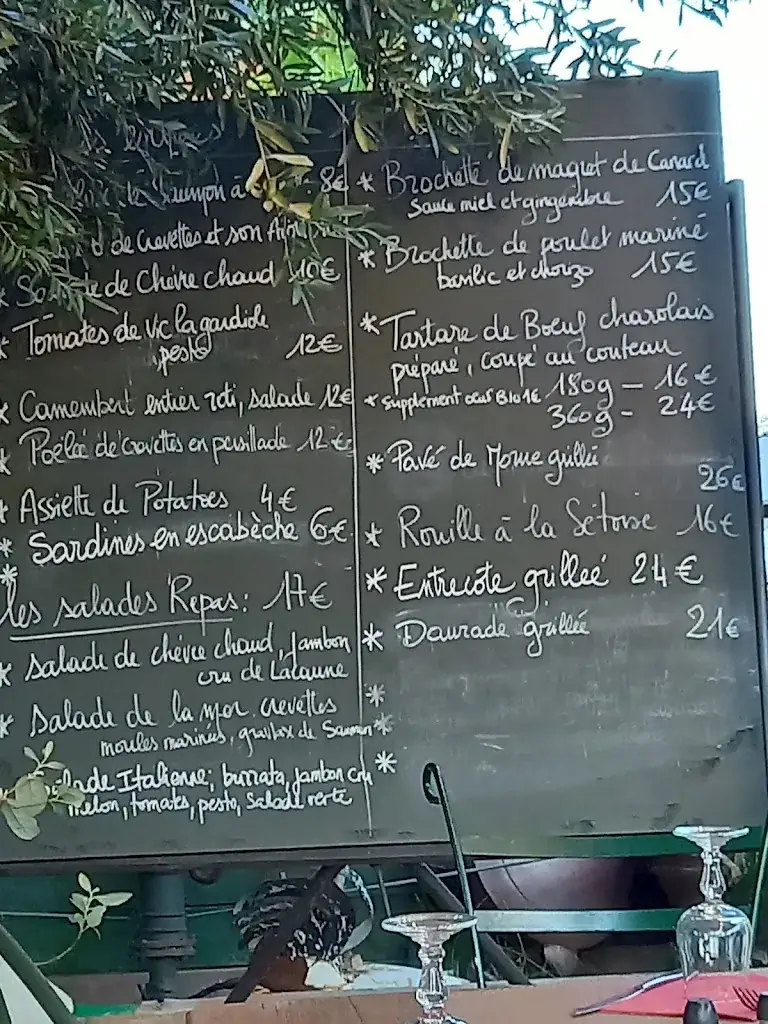 8€
de Crevettes et son
de Chèvre chaud 10€
* Tomates de Vic la gardiole
pesto 12€
* Camembert entier roti, salade 12€
* Poëlée de Crevettes en persillade 12€
* Assiette de Potatoes 4€
* Sardines en escabèche 6€
*
les salades Repas: 17€
* Salade de chèvre chaud, Jambon
cru de Lacaune
* Salade de la mer crevettes
moules marinées, gravlax de Saumon
Italienne, burrata, jambon cru
melon, tomates, pesto, Salade verte
* Brochette de magret de Canard
Sauce miel et gingembre 15€
* Brochette de poulet mariné
basilic et chorizo 15€
* Tartare de Bœuf charolais
préparé, coupé au couteau
180g - 16€
* Supplement œuf Bio 1€
360g - 24€
* Pavé de Morue grillé
26€
* Rouille à la Sétoise 16€
* Entrecote grilleé 24€
* Daurade grillée 21€
*
*
*